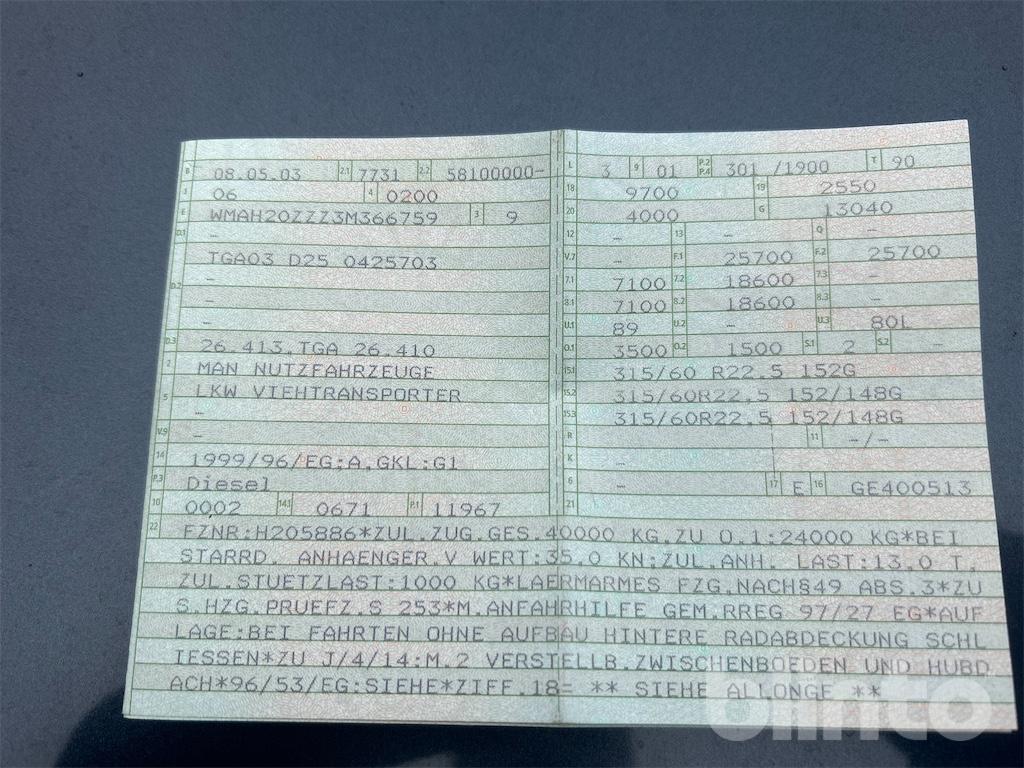 B 08.05.03 2.1 7731 2.2 58100000-
J 06 4 0200
E WMAH20ZZZ3M366759 3 9
D.1 –
TGA03 D25 0425703
D.2 –
–
–
D.3 26.413,TGA 26.410
2 MAN NUTZFAHRZEUGE
5 LKW VIEHTRANSPORTER
–
V.9 –
14 1999/96/EG:A,GKL:G1
P.3 Diesel
10 0002 14.1 0671 P.1 11967
L 3 9 01 P.2 P.4 301 /1900 T 90
18 9700 19 2550
20 4000 G 13040
12 – 13 – Q –
V.7 – F.1 25700 F.2 25700
7.1 7100 7.2 18600 7.3 –
8.1 7100 8.2 18600 8.3 –
U.1 89 U.2 – U.3 80L
O.1 3500 O.2 1500 S.1 2 S.2 –
15.1 315/60 R22.5 152G
15.2 315/60R22.5 152/148G
15.3 315/60R22.5 152/148G
R 11 –/–
K –
6 – 17 E 16 GE400513
21
22 FZNR:H205886*ZUL.ZUG.GES.40000 KG.ZU O.1:24000 KG*BEI
STARRD. ANHAENGER.V WERT:35.0 KN:ZUL.ANH. LAST:13.0 T.
ZUL.STUETZLAST:1000 KG*LAERMARMES FZG.NACH§49 ABS.3*ZU
S.HZG.PRUEFZ.S 253*M.ANFAHRHILFE GEM.RREG 97/27 EG*AUF
LAGE:BEI FAHRTEN OHNE AUFBAU HINTERE RADABDECKUNG SCHL
IESSEN*ZU J/4/14:M.2 VERSTELLB.ZWISCHENBOEDEN UND HUBD
ACH*96/53/EG:SIEHE*ZIFF.18= ** SIEHE ALLONGE **
blinto